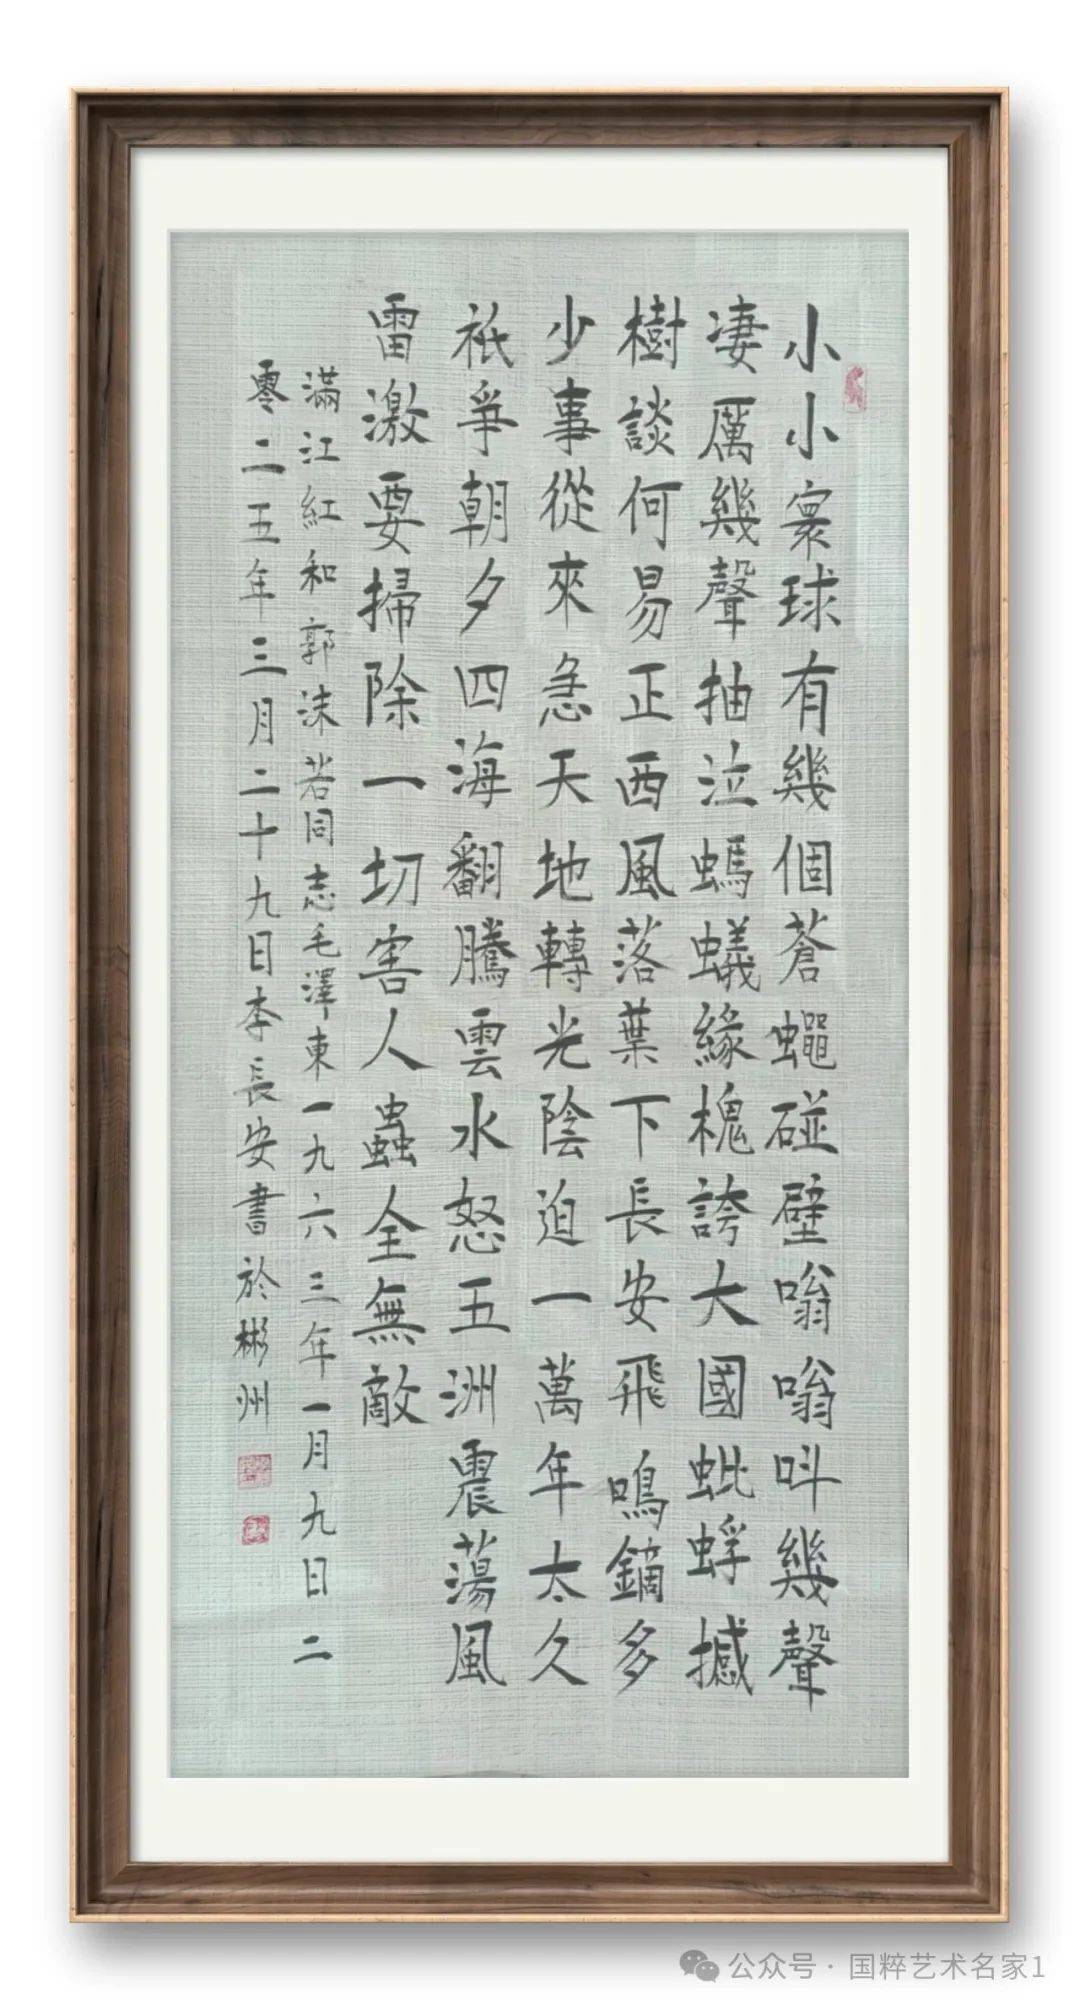 小小寰球有幾個蒼蠅碰壁嗡嗡呌幾聲
凄厲幾聲抽泣螞蟻緣槐誇大國蚍蜉撼
樹談何易正西風落葉下長安飛鳴鏑多
少事從來急天地轉光陰迫一萬年太久
祇爭朝夕四海翻騰雲水怒五洲震蕩風
雷激要掃除一切害人蟲全無敵
滿江紅和郭沫若同志毛澤東一九六三年一月九日二
零二五年三月二十九日李長安書於彬州
公众号 · 国粹艺术名家1